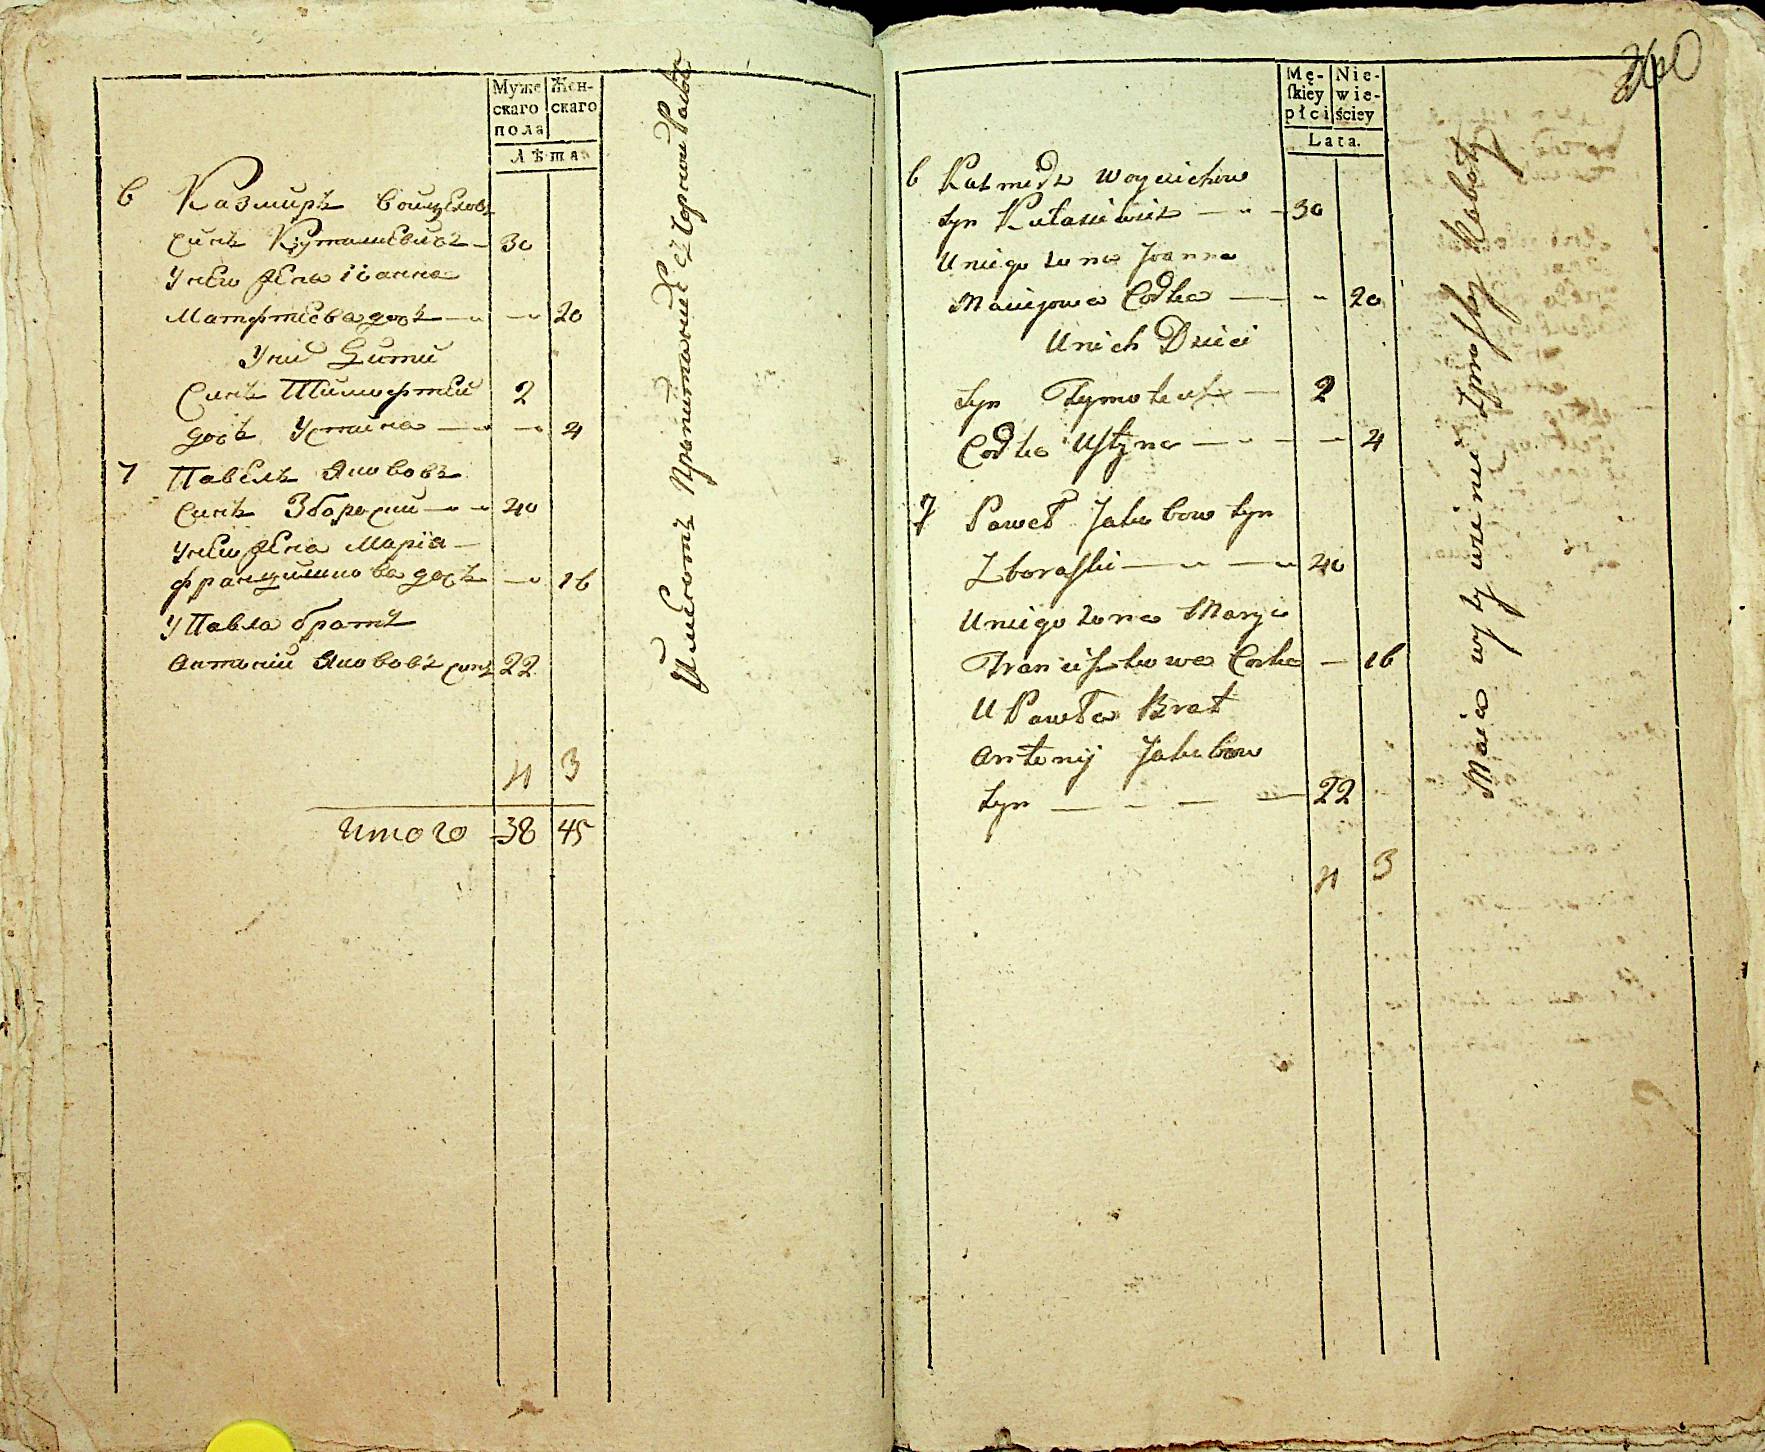 Муже
скаго
пола
Жен-
скаго
Лѣта
6 Казмиръ Войцеховъ
синъ Куташевичъ 30
Унего жена Iоанна
Матфтиева дочь 20
Уних Дити
Синъ Тимофтей 2
дочь Устина 4
7 Павелъ Якововъ
синъ Збораский 40
Унего жена Мария
францишкова дочь 16
У Павла братъ
Антоний Якововъ синъ 22
4 3
Итого 38 45
Имеютъ Пропитание съ Чорной Работы
360
Mę-
ſkiey
płci
Nie-
wie-
ściey
Lata.
6 Kazmirz Woyciechow
Syn Kutasiewicz 30
U niego zona Joanna
Macieiowa Codka 20
U nich Dzieci
Syn Tymoteusz 2
Codka Uſtyna 4
7 Paweł Jakubow Syn
Zboraſki 40
U niego zona Marya
Franciſzkowa Corka 16
U Pawła Brat
Antonij Jakubow
Syn 22
4 3
Maią wyżywienie z proſtey Roboty